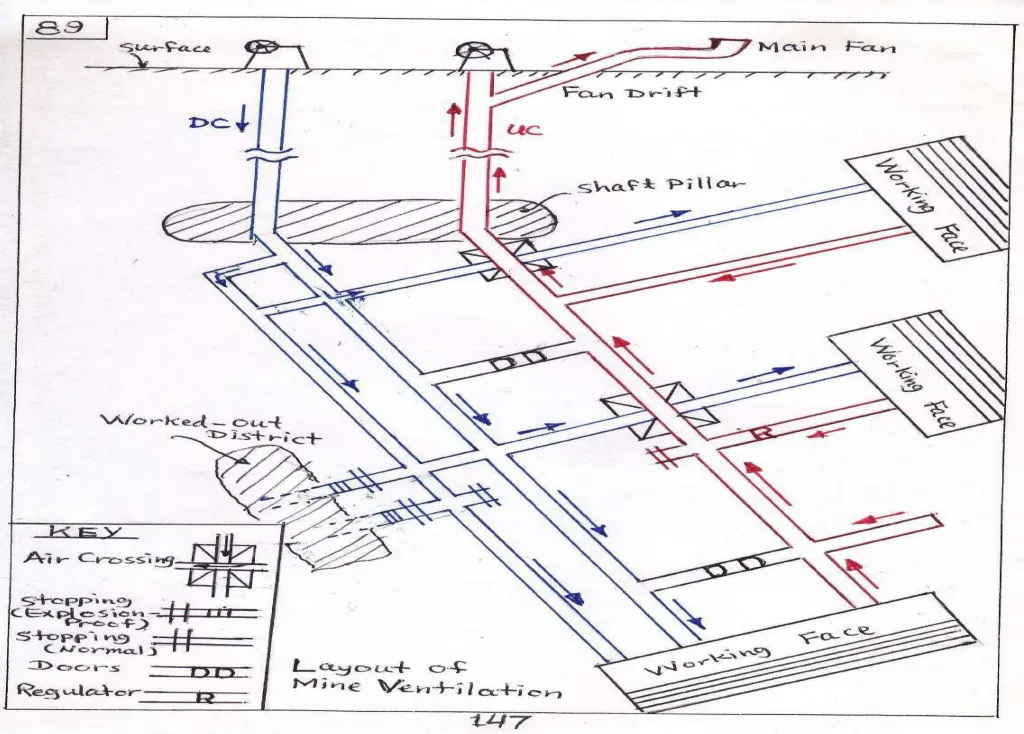 89
Surface
Main Fan
Fan Drift
DC
UC
Shaft Pillar
Working Face
DD
Working Face
R
Worked-out
District
DD
Working Face
KEY
Air Crossing
Stopping
(Explosion-
Proof)
Stopping
(Normal)
Doors
DD
Regulator
R
Layout of
Mine Ventilation
147